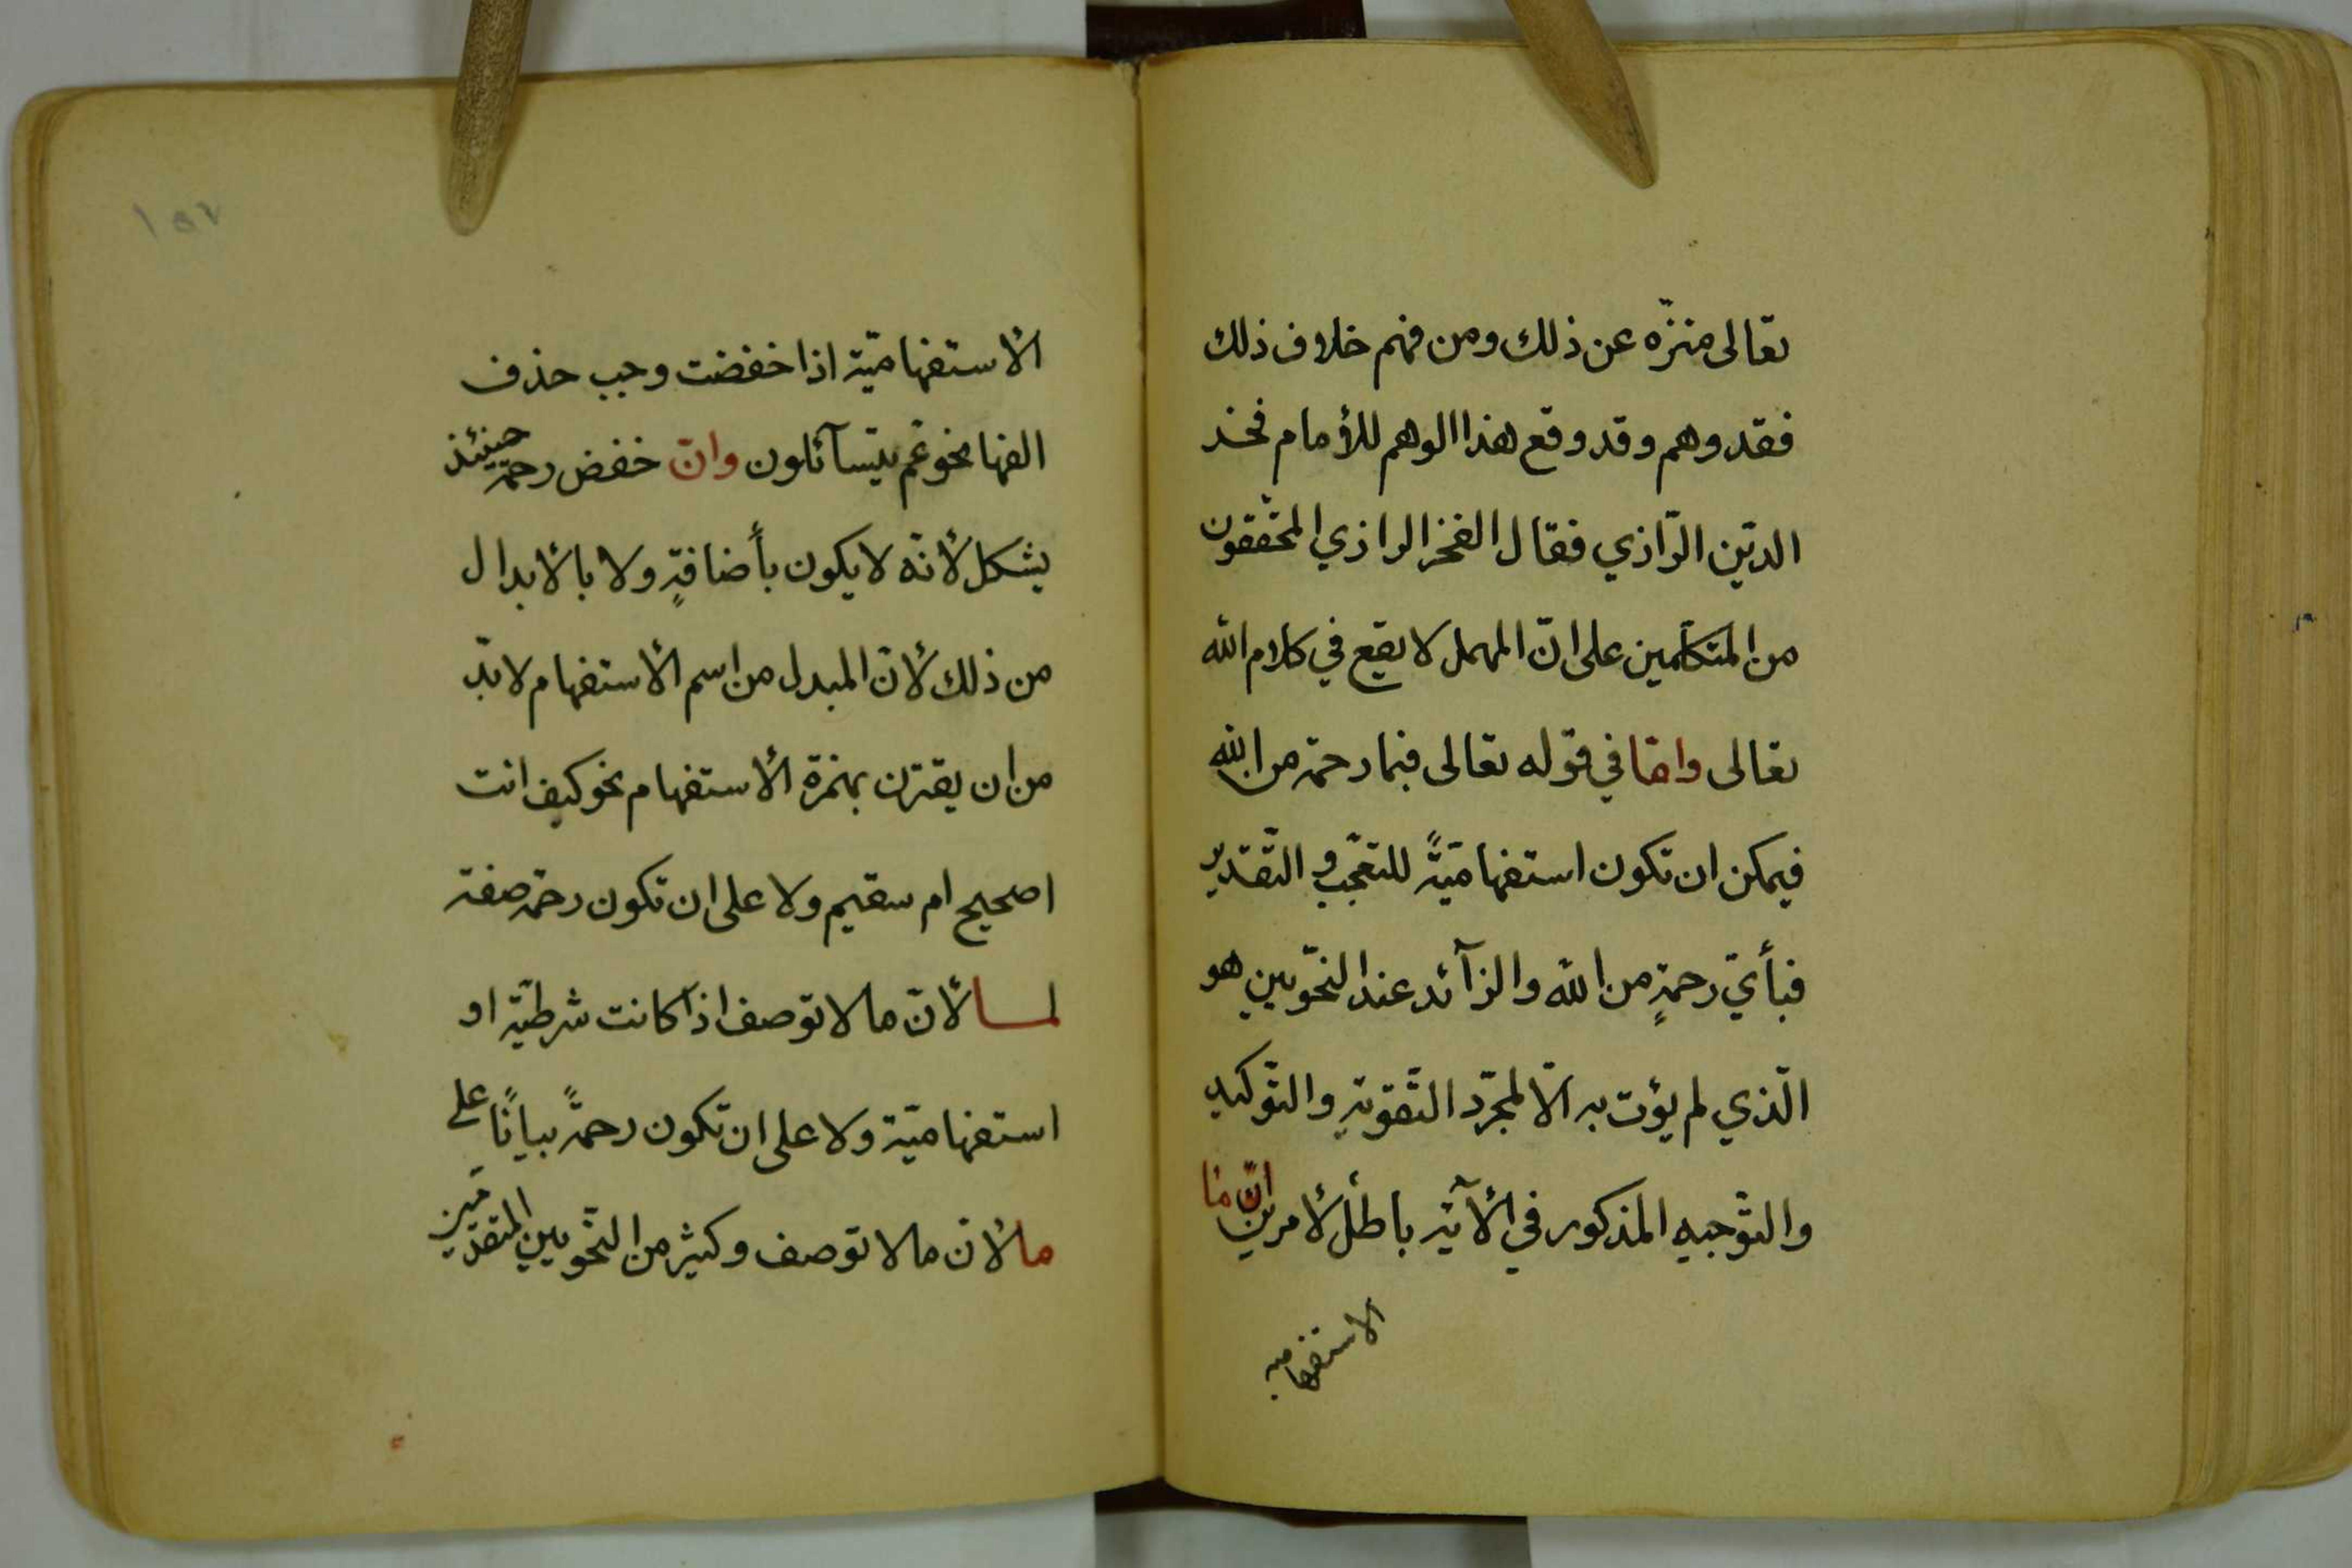 تعالى منزّه عن ذلك ومن فهم خلاف ذلك
فقد وهم وقد وقع هذا الوهم للأمام فخذ
الدّين الرّازي فقال الفخر الرازي المحقّقون
من المتكلّمين على انّ المهمل لا يقع في كلام الله
تعالى وامّا في قوله تعالى فبما رحمة من الله
فيمكن ان تكون استفهاميّةً للتعجّب والتّقدير
فبأيّ رحمةٍ من الله والزآئد عند النحّويين هو
الّذي لم يؤت به الّا لمجرّد التّقوية والتّوكيد
والتّوجيه المذكور في الأآية باطل لأمرين انّ ما
الاستفهاميه
١٥٧
الأستفهاميّة اذا خفضت وجب حذف
الفها نحو عمّ يتسآئلون وانّ خفض رحمة حينئذ
يشكل لأنّه لا يكون بأضافةٍ ولا بالأبدال
من ذلك لأنّ المبدل من اسم الأستفهام لا بدّ
من ان يقترن بهمزة الأستفهام نحو كيف انت
اصحيح ام سقيم ولا على ان تكون رحمة صفة
لما لأنّ ما لا توصف اذا كانت شرطيّة او
استفهاميّة ولا على ان تكون رحمةً بيانًا على
ما لأنّ ما لا توصف وكثير من النّحويين المتقدّمين